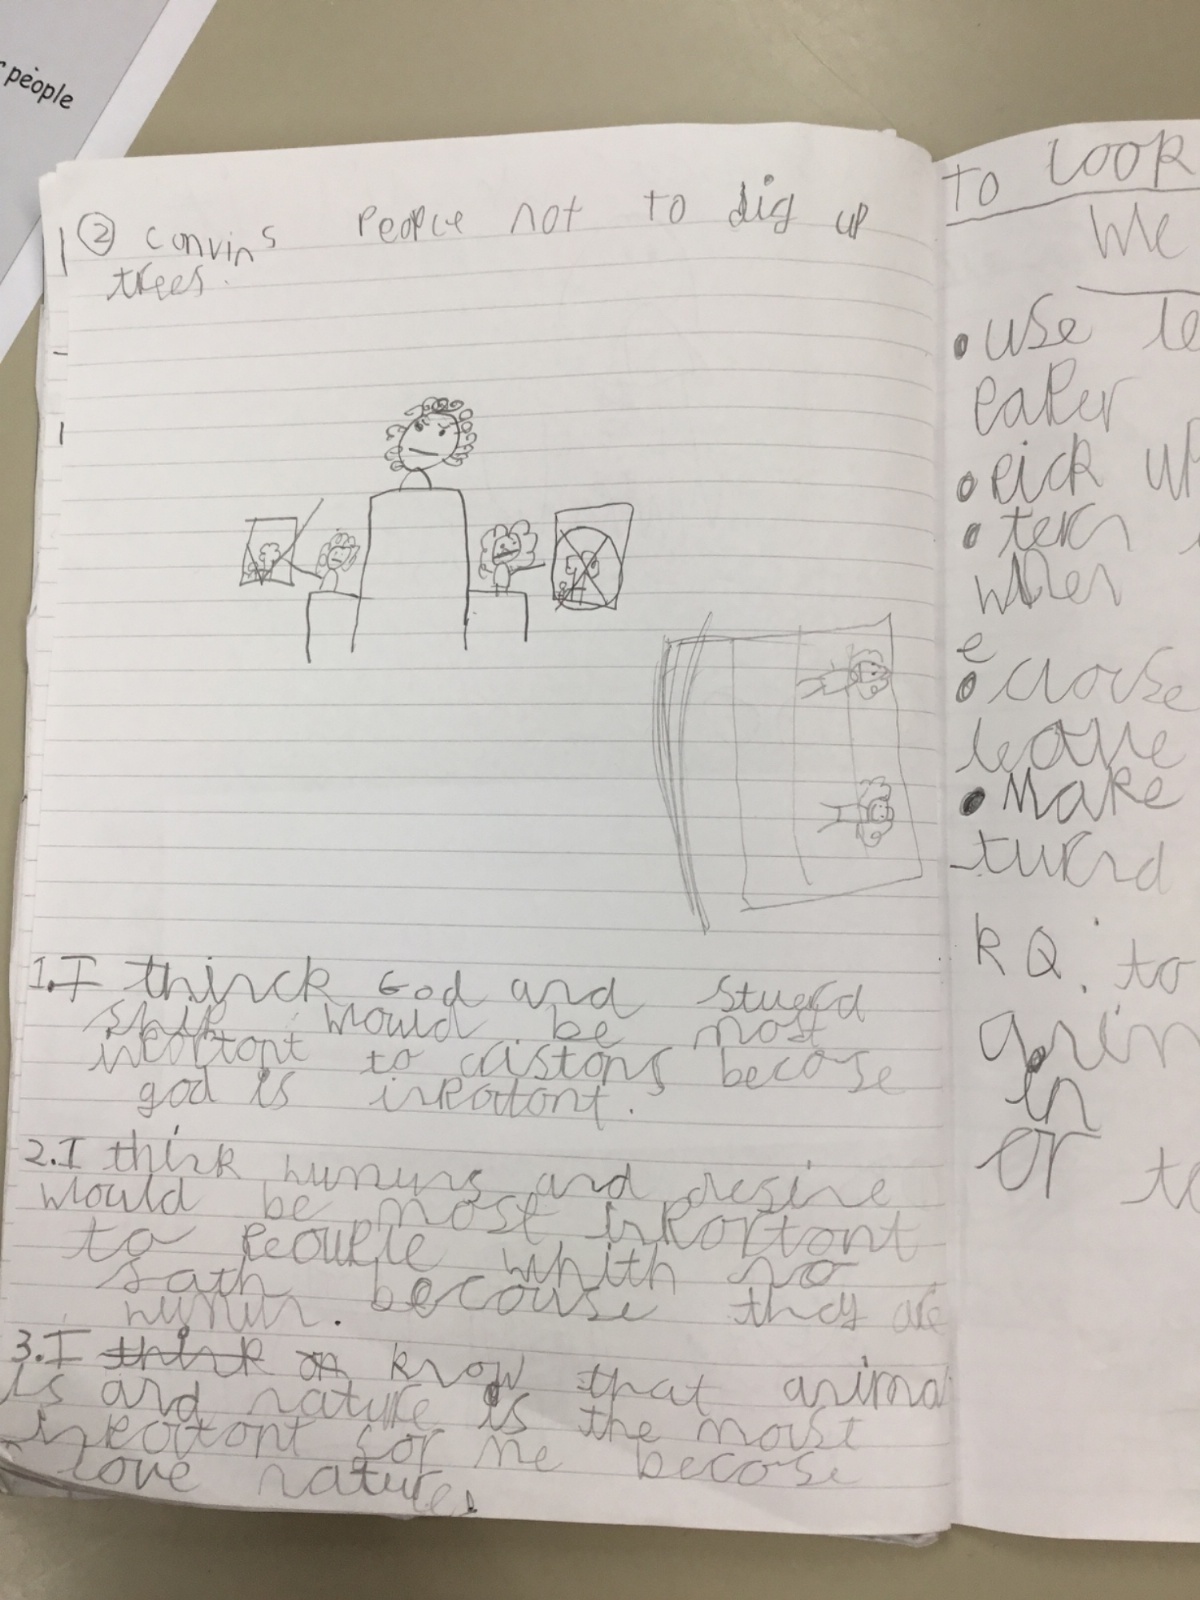 r people
② convins people not to dig up
trees.
1. I thinck God and stuerd
would be most
inportont to cristons becose
god is inportont.
2. I think humuns and desire
would be most inportont
to peouple whith no
humun. becouse they are
3. I think on know that anima
is and nature is the most
inportont for me becose
love nature.
To look
We
• use le
paper
• pick up
• tern
when
e
• clorse
leave
• Make
turnd
RQ: to
in
or to